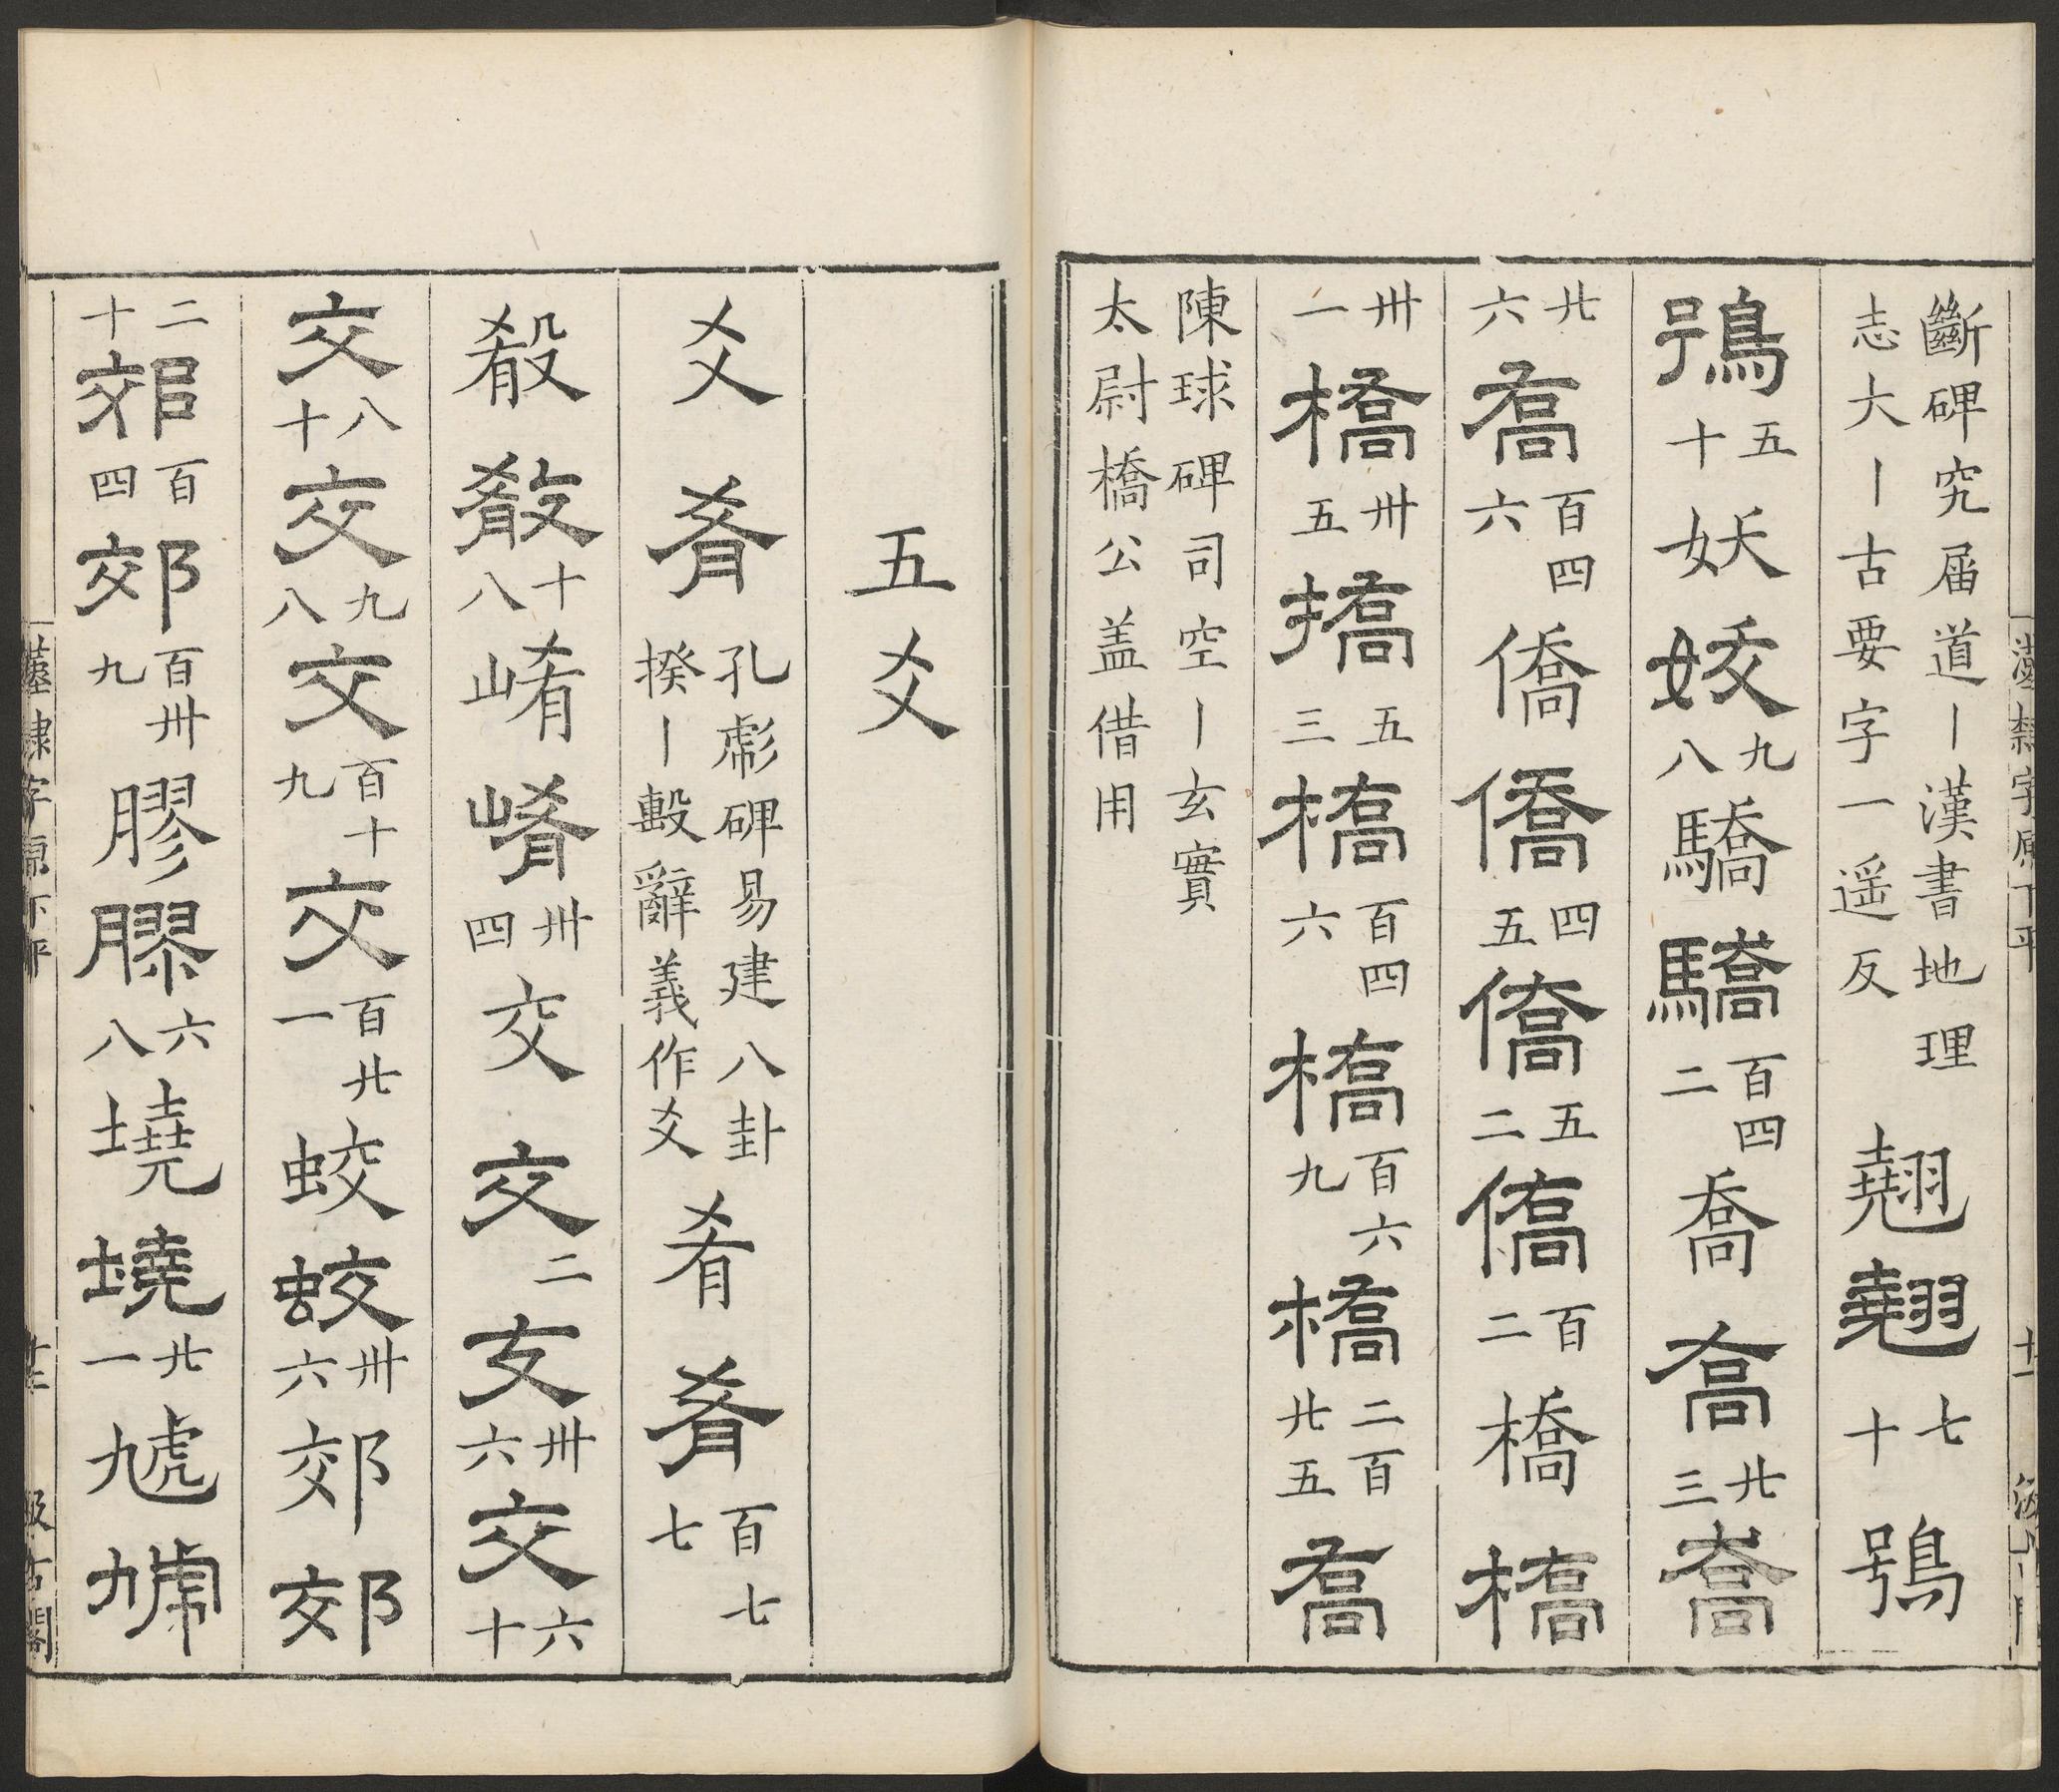 斷碑究届道丨漢書地理
志大丨古要字一遥反
翹翹七十鴞
鴞五十妖妖九八驕驕百四二喬喬廿三喬
廿六喬百四六僑僑四五僑五二僑百二橋橋
卅一橋卅五撟五三橋百四六橋百六九橋二百廿五喬
陳球碑司空丨玄實
太尉橋公盖借用
五爻
爻肴
孔彪碑易建八卦
揆丨毄辭義作爻
肴肴百七七
殽殽十八崤崤卅四交交二交卅六交六十
交八十交九八交百十九交百廿一蛟蛟卅六郊郊
二十郊百四郊百卅九膠膠六八墝墝廿一虓虓
隸字源下平
汲古閣